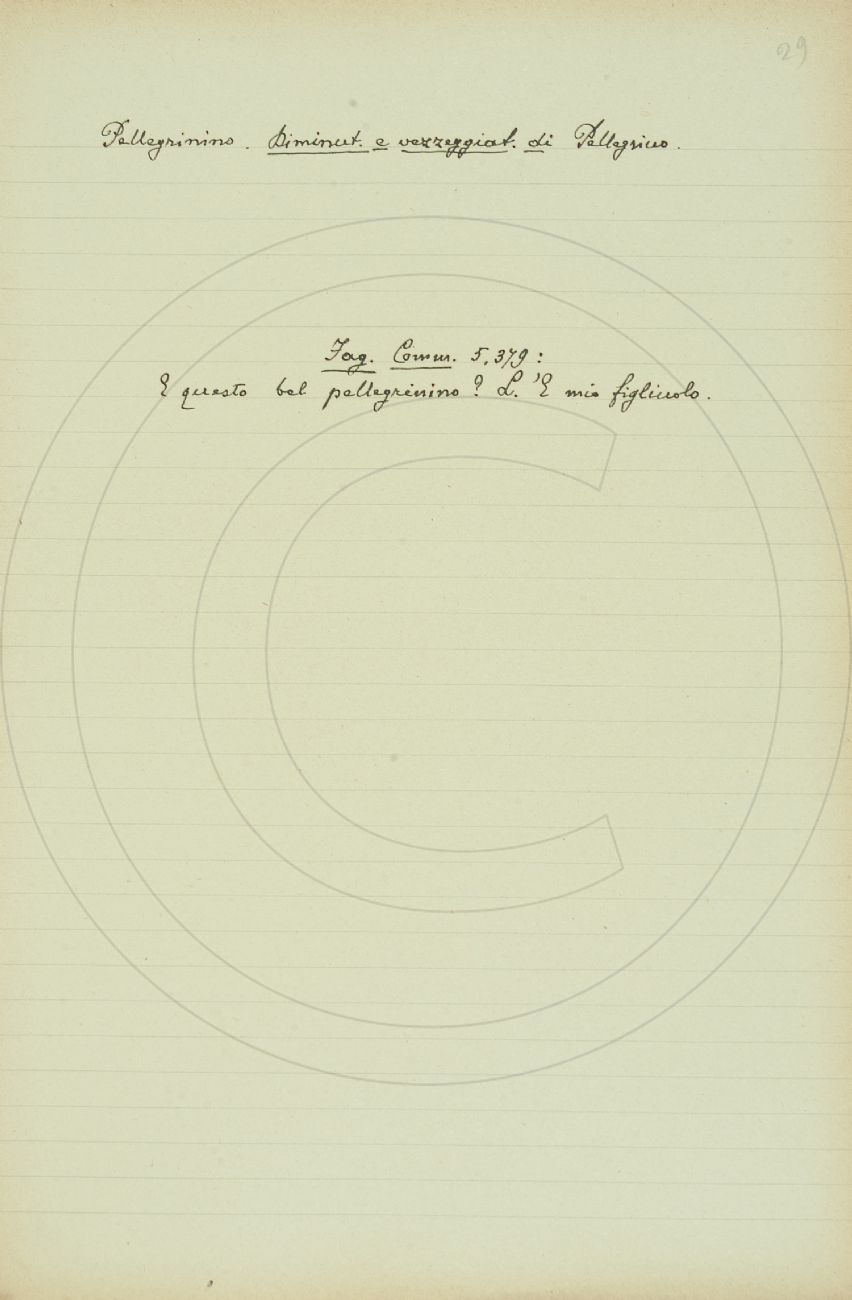 29
Pellegrinino. Diminut. e vezzeggiat. di Pellegrino.
Fag. Comm. 5.379:
E questo bel pellegrinino? L. 'E mio figliuolo.